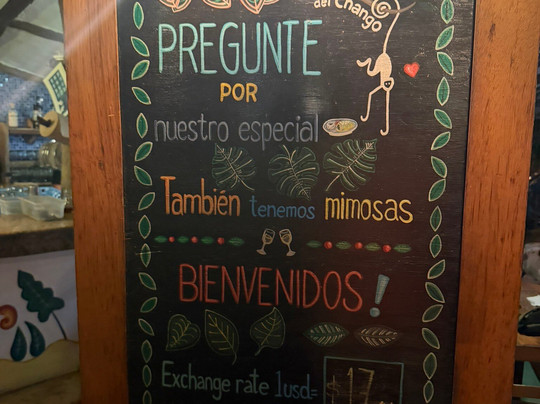 del Chango
PREGUNTE
POR
nuestro especial
También tenemos mimosas
BIENVENIDOS!
Exchange rate 1usd= $17